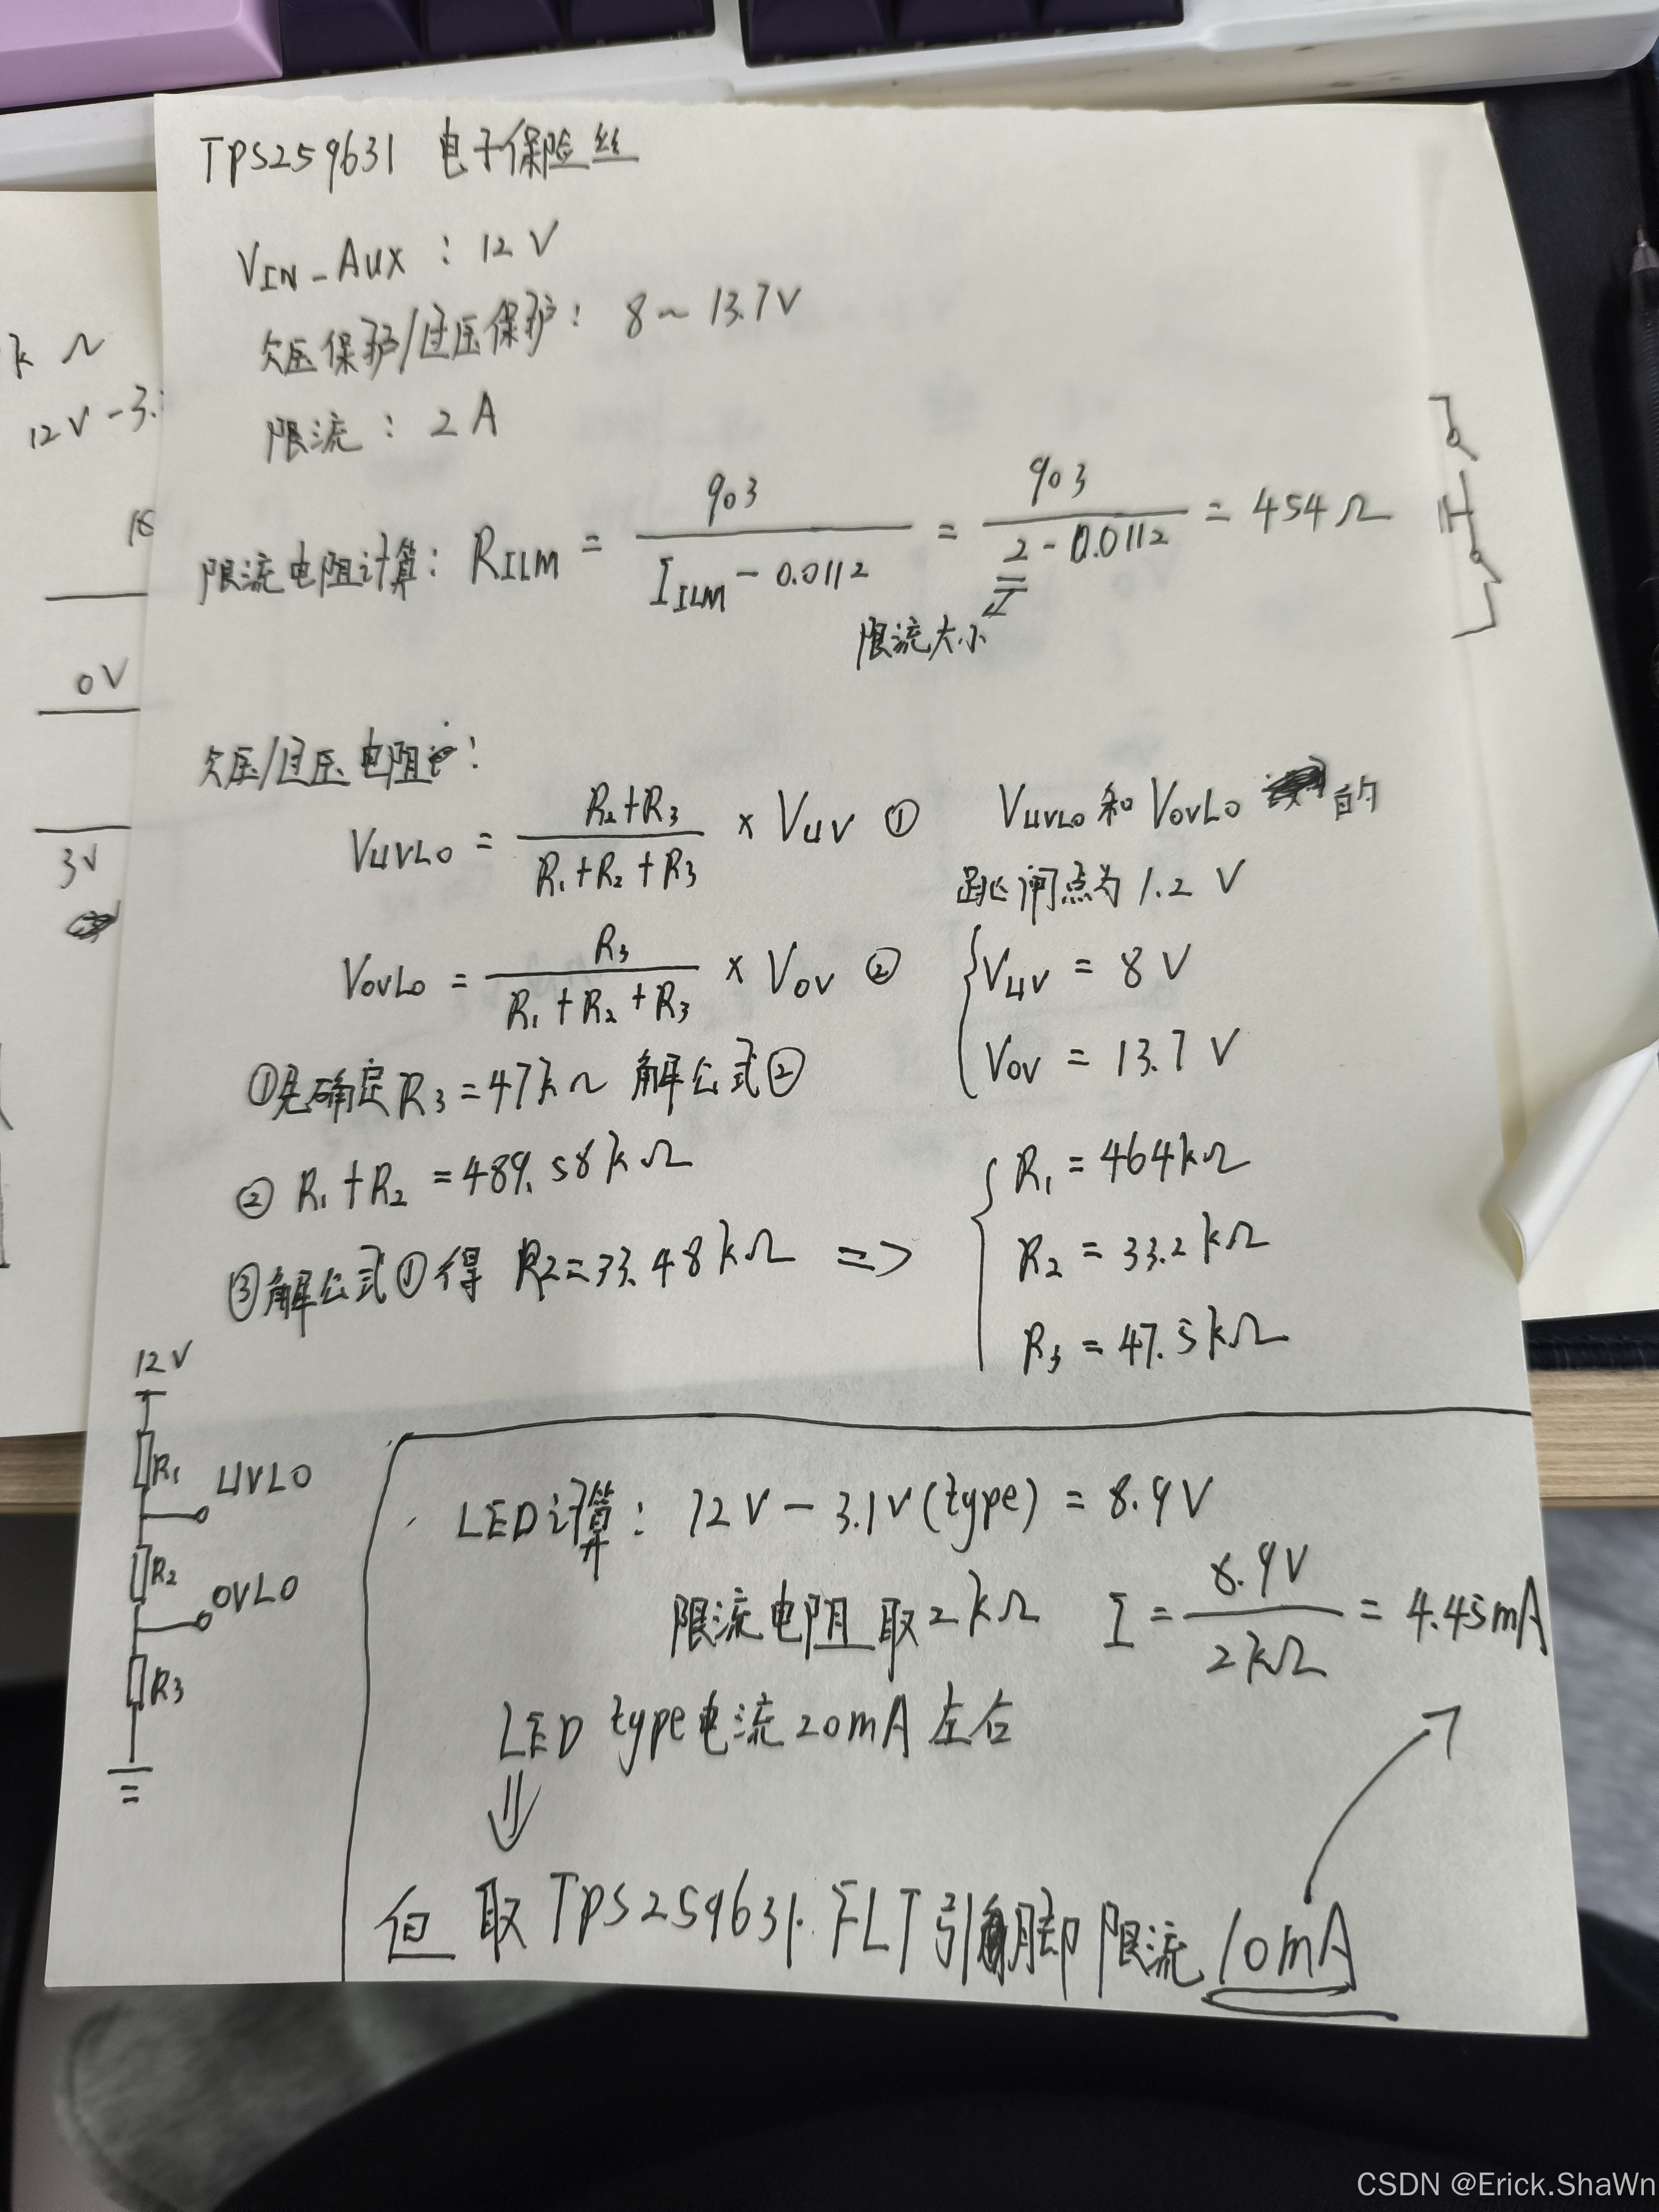 TPS259631 电子保险丝
VIN_AUX : 12V
欠压保护/过压保护: 8~13.7V
限流: 2A
限流电阻计算: RILM = 903 / (IILM - 0.0112) = 903 / (2 - 0.0112) = 454Ω
限流大小
欠压/过压电阻:
VUVLO = (R2+R3) / (R1+R2+R3) × VUV ①
VUVLO和VOVLO 的
跳闸点为1.2V
VOVLO = R3 / (R1+R2+R3) × VOV ②
VUV = 8V
VOV = 13.7V
①先确定R3=47kΩ 解公式②
② R1+R2 = 489.58kΩ
③解公式①得 R2=33.48kΩ =>
R1 = 464kΩ
R2 = 33.2kΩ
R3 = 47.5kΩ
12V
R1
UVLO
R2
OVLO
R3
LED计算: 12V - 3.1V(type) = 8.9V
限流电阻取2kΩ I = 8.9V / 2kΩ = 4.45mA
LED type电流20mA左右
但取TPS259631 FLT引脚限流10mA
kΩ
12V-3.
0V
3V
CSDN @Erick.ShaWn